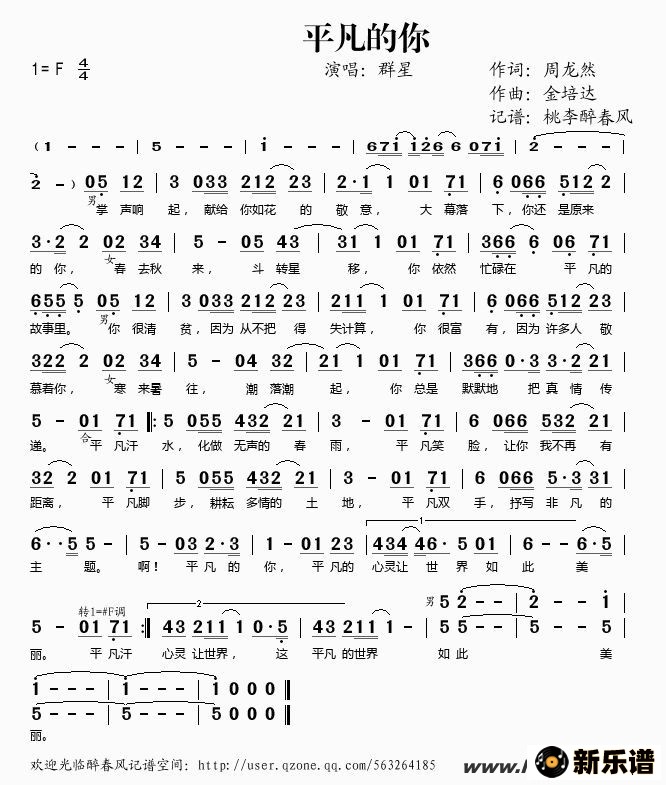 平凡的你
1=F 4/4 演唱：群星 作词：周龙然
作曲：金培达
记谱：桃李醉春风
(1 - - - | 5 - - - | i - - - | 671 126 6 071 | 2 - - - |
2 - - ) 05 12 | 3 033 212 23 | 2·1 1 01 71 | 6 066 512 2 |
男 掌 声响 起，献给 你如花 的 敬 意， 大 幕落 下，你还 是原来
3·2 2 02 34 | 5 - 05 43 | 31 1 01 71 | 366 6 06 71 |
的 你， 女 春 去秋 来， 斗 转星 移， 你 依然 忙碌在 平 凡的
655 5 05 12 | 3 033 212 23 | 211 1 01 71 | 6 066 512 23 |
故事里。 男 你 很清 贫，因为 从不把 得 失计算， 你 很富 有，因为 许多人 敬
322 2 02 34 | 5 - 04 32 | 21 1 01 71 | 366 0·3 3·2 21 |
慕若你， 女 寒 来暑 往， 潮 落潮 起， 你 总是 默默地 把 真 情 传
5 - 01 71 ‖: 5 055 432 21 | 3 - 01 71 | 6 066 532 21 |
递。 合 平 凡汗 水，化做 无声的 春 雨， 平 凡笑 脸，让你 我不再 有
32 2 01 71 | 5 055 432 21 | 3 - 01 71 | 6 066 5·3 31 |
距离， 平 凡脚 步，耕耘 多情的 土 地， 平 凡双 手，抒写 非 凡 的
1
6··5 5 - | 5 - 03 2·3 | 1 - 01 23 | 434 46· 501 | 6 - - 5 |
主 题。 啊！ 平 凡 的 你， 平 凡的 心灵让 世 界 如 此 美
转1=#F调 2 男 5 2 - - | 2 - - i |
5 - 01 71 :‖ 43 211 1 0·5 | 43 211 1 - | 5 5 - - | 5 - - 5 |
丽。 平 凡汗 心灵 让世界， 这 平凡 的世界 如 此 美
1 - - - | 1 - - - | 1 0 0 0 ‖
5 - - - | 5 - - - | 5 0 0 0 ‖
丽。
欢迎光临醉春风记谱空间：http://user.qzone.qq.com/563264185
www. 新乐谱